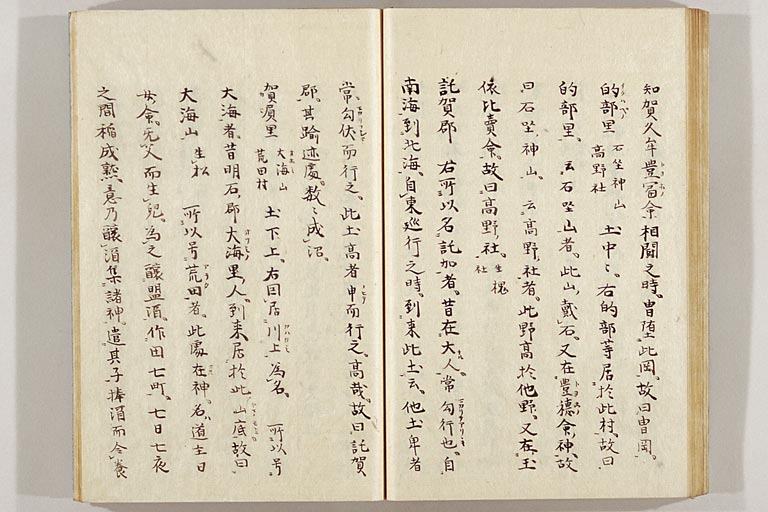 知賀久牟豊冨命相闘之時。冑堕此岡。故曰冑岡。
的部里 石坐神山 高野社 土中〻。右的部等居於此村。故曰
的部里。云石坐山者。此山戴石。又在豊穂命神。故
曰石坐神山。云高野社者。此野高於他野。又在玉
依比賣命。故曰高野社。生槐 社
託賀郡 右所以名託加者。昔在大人。常勾行也。自
南海到北海。自東巡行之時。到来此土云。他土卑者
常勾伏而行之。此土高者申而行之。高哉。故曰託賀
郡。其踰迹處。数〻成沼。
賀眉里 大海山 荒田村 土下上。右因居川上為名。所以号
大海者。昔明石郡大海里人。到来居於此山底。故曰
大海山 生松 所以号荒田者。此處在神。名道主日
女命。无父而生兒。為之釀盟酒。作田七町。七日七夜
之間稲成熟。竟乃釀酒集諸神。遣其子捧酒而令養